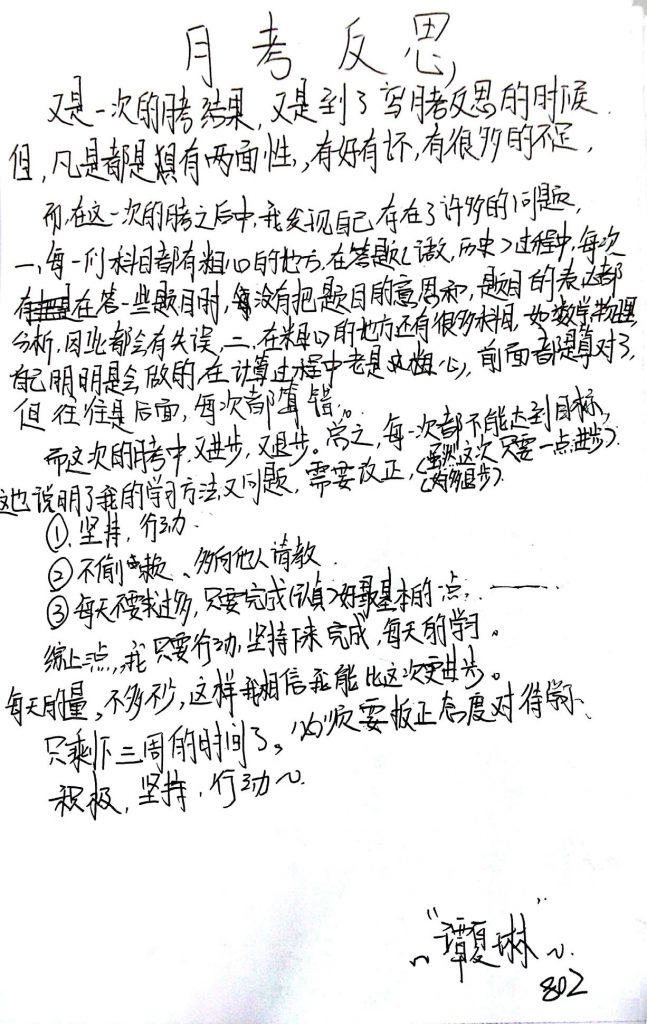 月考反思
又是一次的月考结果，又是到了写月考反思的时候.
但，凡是都是具有两面性，有好有坏，有很多的不足，
而，在这一次的月考之后中，我发现自己存在了许多的问题，
一，每一们科目都有粗心的地方，在答题(语数，历史)过程中，每次
有在答一些题目时，每没有把题目的意思和，题目的表达都
分析，因此都会有失误，二，在粗心的地方还有很多科目，如数学，物理
自己明明是会做的，在计算过程中老是粗心，前面都是算对了，
但往往是后面，每次都算错。
而这次的月考中，又进步，又退步。总之，每一次都不能达到目标，
这也说明了我的学习方法又问题，需要改正，(虽然这次只要一点进步)
(好多退步)
①，坚持，行动.
②不偷懒、多向他人请教
③每天不要求过多，只要完成(认真)好最基本的一点，——
综上三点，我只要行动，坚持下来完成，每天的学习。
每天的量，不多不少，这样我相信我能比这次更进步。
只剩下三周的时间了。必须要板正态度对待学习、
积极，坚持，行动~.
~"谭夏琳"~.
802